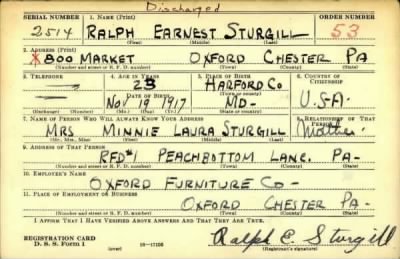 Discharged
SERIAL NUMBER 1. NAME (Print) ORDER NUMBER
2514 RALPH EARNEST STURGILL 53
(First) (Middle) (Last)
2. ADDRESS (Print)
X 800 MARKET OXFORD CHESTER PA
(Number and street or R. F. D. number) (Town) (County) (State)
3. TELEPHONE 4. AGE IN YEARS 5. PLACE OF BIRTH 6. COUNTRY OF CITIZENSHIP
23 HARFORD CO
DATE OF BIRTH (Town or county)
NOV 19 1917 MD- U.S.A.
(Exchange) (Number) (Mo.) (Day) (Yr.) (State or country)
7. NAME OF PERSON WHO WILL ALWAYS KNOW YOUR ADDRESS 8. RELATIONSHIP OF THAT PERSON
MRS MINNIE LAURA STURGILL Mother
(Mr., Mrs., Miss) (First) (Middle) (Last)
9. ADDRESS OF THAT PERSON
RFD#1 PEACHBOTTOM LANC. PA-
(Number and street or R. F. D. number) (Town) (County) (State)
10. EMPLOYER'S NAME
OXFORD FURNITURE CO-
11. PLACE OF EMPLOYMENT OR BUSINESS
OXFORD CHESTER PA-
(Number and street or R. F. D. number) (Town) (County) (State)
I AFFIRM THAT I HAVE VERIFIED ABOVE ANSWERS AND THAT THEY ARE TRUE.
REGISTRATION CARD
D. S. S. Form 1 (over) Ralph E. Sturgill
(Registrant's signature)